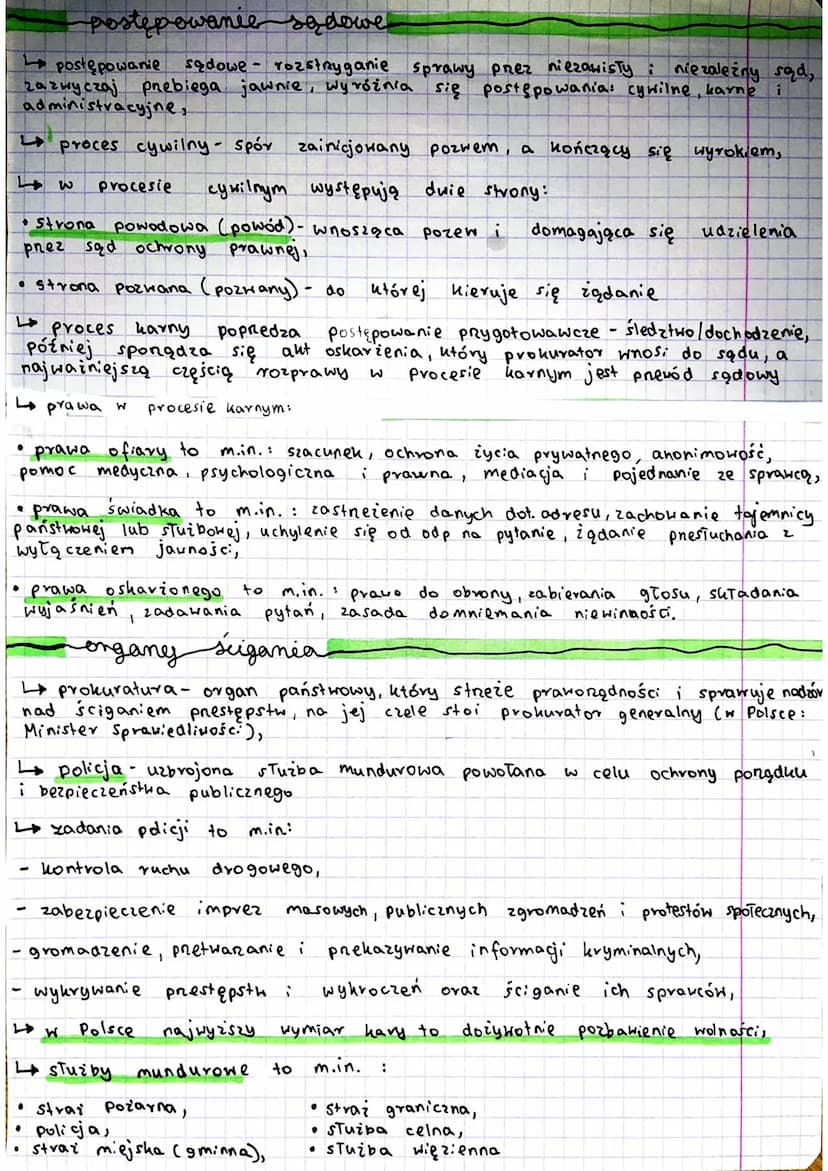 postępowanie sądowe
↳ postępowanie sądowe - rozstrzyganie sprawy przez niezawisły i niezależny sąd,
zazwyczaj przebiega jawnie, wyróżnia się postępowania: cywilne, karne i
administracyjne,
↳ proces cywilny - spór zainicjowany pozwem, a kończący się wyrokiem,
↳ w procesie cywilnym występują dwie strony:
• strona powodowa (powód) - wnosząca pozew i domagająca się udzielenia
przez sąd ochrony prawnej,
• strona pozwana (pozwany) - do której kieruje się żądanie
↳ proces karny poprzedza postępowanie przygotowawcze - śledztwo/dochodzenie,
później sporządza się akt oskarżenia, który prokurator wnosi do sądu, a
najważniejszą częścią rozprawy w procesie karnym jest przewód sądowy
↳ prawa w procesie karnym:
• prawa ofiary to m.in.: szacunek, ochrona życia prywatnego, anonimowość,
pomoc medyczna, psychologiczna i prawna, mediacja i pojednanie ze sprawcą,
• prawa świadka to m.in.: zastrzeżenie danych dot. adresu, zachowanie tajemnicy
państwowej lub służbowej, uchylenie się od odp na pytanie, żądanie przesłuchania z
wyłączeniem jawności,
• prawa oskarżonego to m.in.: prawo do obrony, zabierania głosu, składania
wyjaśnień, zadawania pytań, zasada domniemania niewinności.
organy ścigania
↳ prokuratura - organ państwowy, który strzeże praworządności i sprawuje nadzór
nad ściganiem przestępstw, na jej czele stoi prokurator generalny (w Polsce:
Minister Sprawiedliwości),
↳ policja - uzbrojona służba mundurowa powołana w celu ochrony porządku
i bezpieczeństwa publicznego
↳ zadania policji to m.in:
- kontrola ruchu drogowego,
- zabezpieczenie imprez masowych, publicznych zgromadzeń i protestów społecznych,
- gromadzenie, przetwarzanie i przekazywanie informacji kryminalnych,
- wykrywanie przestępstw i wykroczeń oraz ściganie ich sprawców,
↳ w Polsce najwyższy wymiar kary to dożywotnie pozbawienie wolności,
↳ służby mundurowe to m.in. :
• straż pożarna,
• policja,
• straż miejska (gminna),
• straż graniczna,
• służba celna,
• służba więzienna